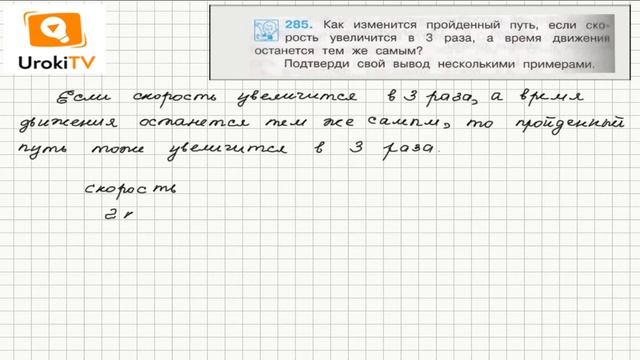 UrokiTV
285. Как изменится пройденный путь, если ско-
рость увеличится в 3 раза, а время движения
останется тем же самым?
Подтверди свой вывод несколькими примерами.
Если скорость увеличится в 3 раза, а время
движения останется тем же самым, то пройденный
путь тоже увеличится в 3 раза.
скорость
2 к